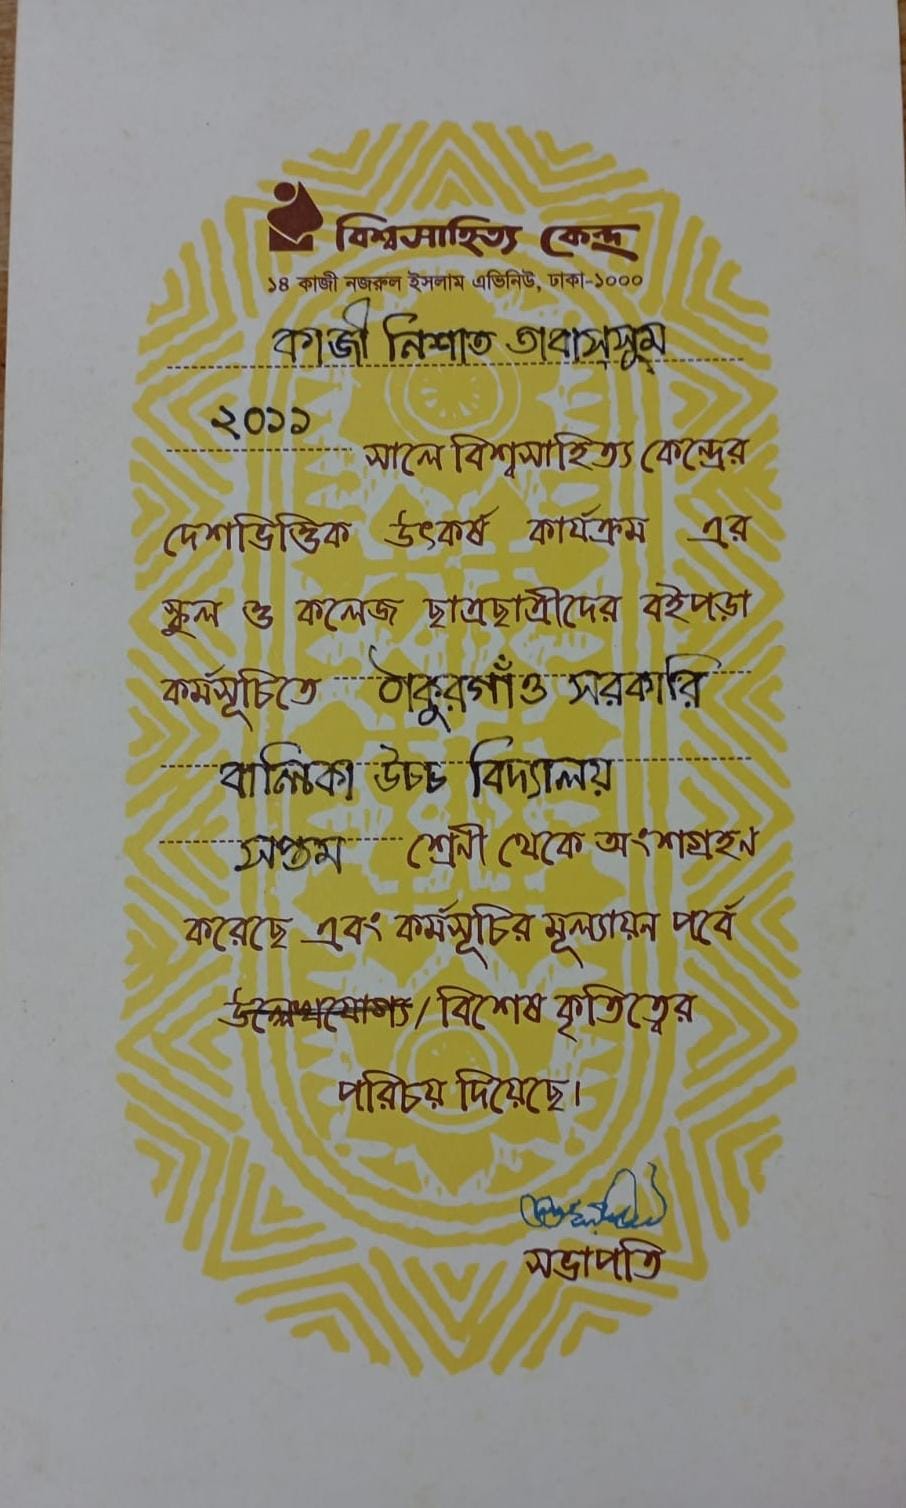 বিশ্বসাহিত্য কেন্দ্র
১৪ কাজী নজরুল ইসলাম এভিনিউ, ঢাকা-১০০০
কাজী নিশাত তাবাস্সুম
২০১১ সালে বিশ্বসাহিত্য কেন্দ্রের
দেশভিত্তিক উৎকর্ষ কার্যক্রম এর
স্কুল ও কলেজ ছাত্রছাত্রীদের বইপড়া
কর্মসূচিতে ঠাকুরগাঁও সরকারি
বালিকা উচ্চ বিদ্যালয়
সপ্তম শ্রেনী থেকে অংশগ্রহন
করেছে এবং কর্মসূচির মূল্যায়ন পর্বে
উল্লেখযোগ্য / বিশেষ কৃতিত্বের
পরিচয় দিয়েছে।
সভাপতি